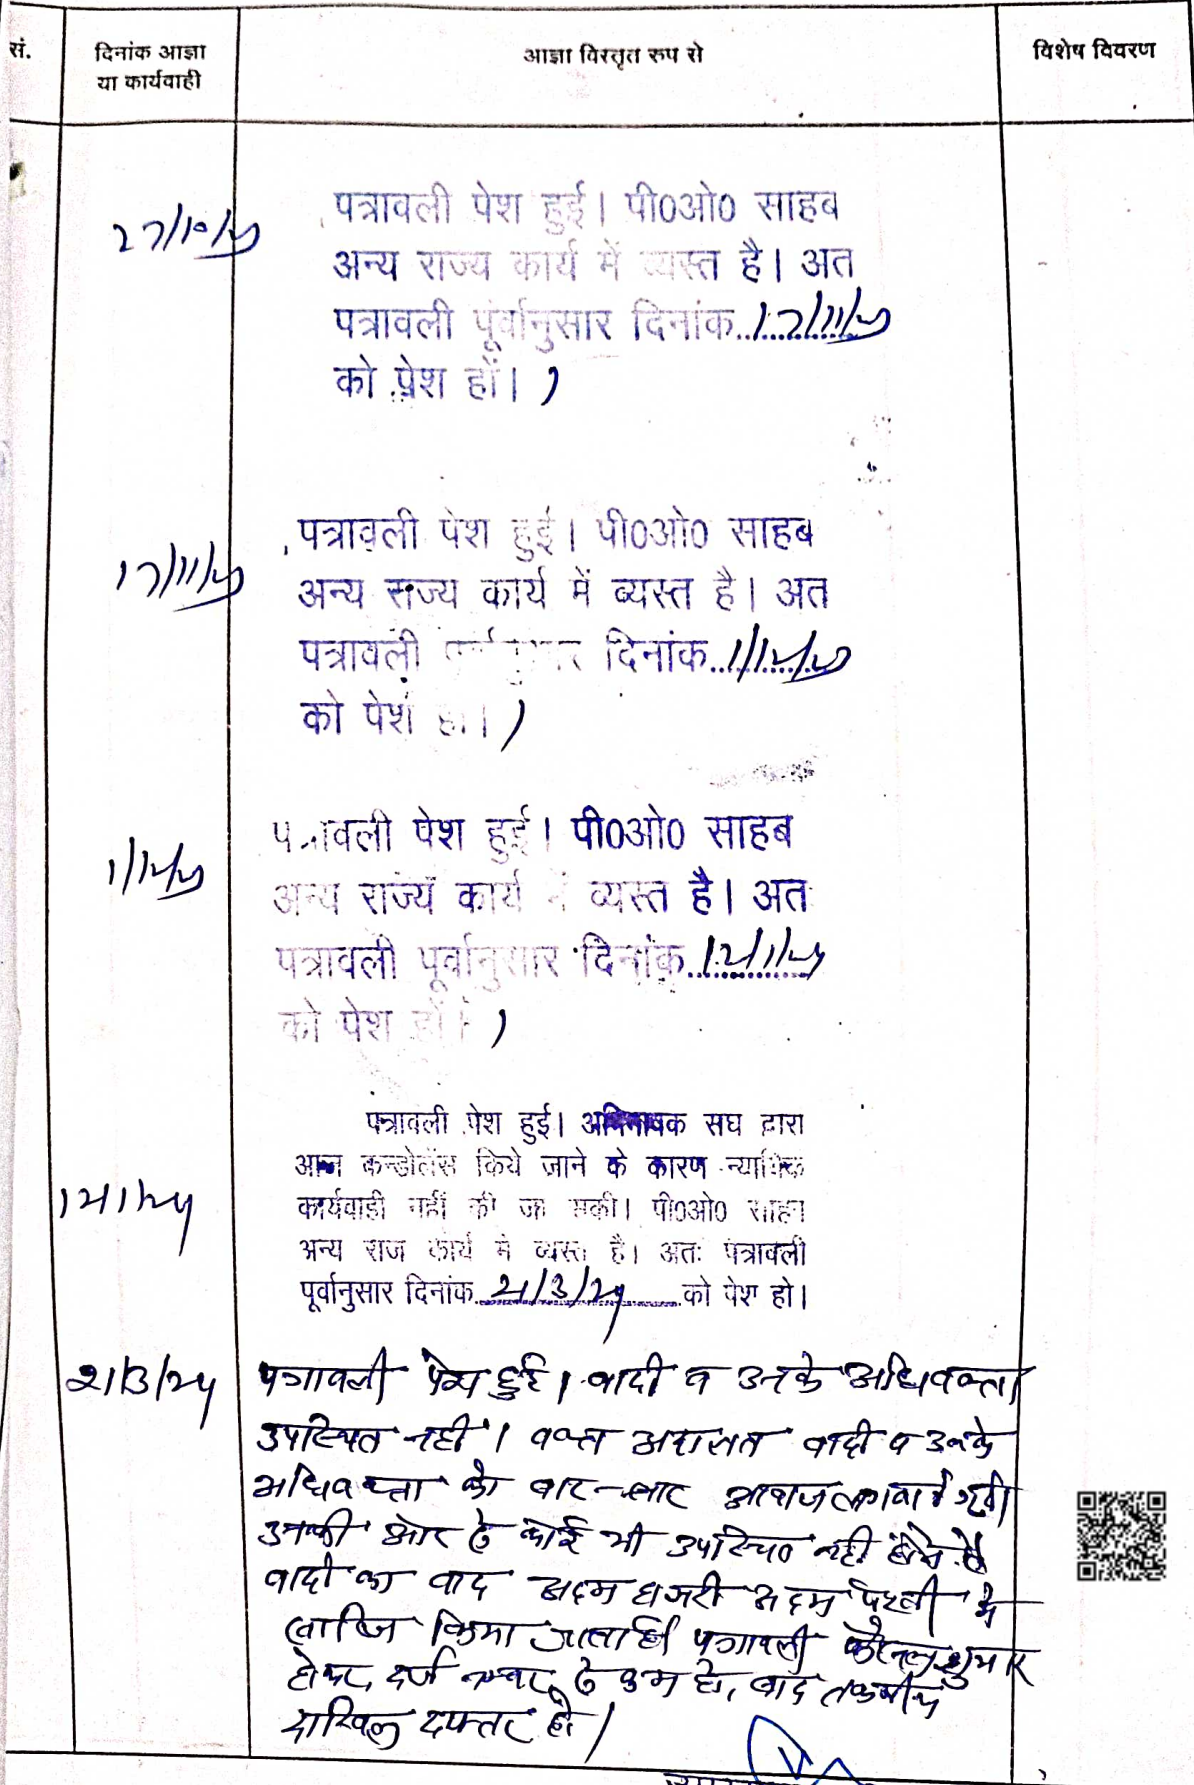 सं.
दिनांक आज्ञा
या कार्यवाही
आज्ञा विस्तृत रुप से
विशेष विवरण
27/10/23
पत्रावली पेश हुई। पी0ओ0 साहब
अन्य राज्य कार्य में व्यस्त है। अत
पत्रावली पूर्वानुसार दिनांक..17/11/23
को पेश हों।
17/11/23
पत्रावली पेश हुई। पी0ओ0 साहब
अन्य राज्य कार्य में व्यस्त है। अत
पत्रावली पूर्वानुसार दिनांक..1/12/23
को पेश हों।
1/12/23
पत्रावली पेश हुई। पी0ओ0 साहब
अन्य राज्य कार्य में व्यस्त है। अत
पत्रावली पूर्वानुसार दिनांक..12/1/24
को पेश हों।
12/1/24
पत्रावली पेश हुई। अभिभाषक संघ द्वारा
आज कन्डोलेंस किये जाने के कारण न्यायिक
कार्यवाही नहीं की जा सकी। पी0ओ0 साहब
अन्य राज कार्य में व्यस्त है। अतः पत्रावली
पूर्वानुसार दिनांक 21/3/24 को पेश हो।
21/3/24
पत्रावली पेश हुई। वादी व उनके अधिवक्ता
उपस्थित नहीं। वक्त अदालत वादी व उनके
अधिवक्ता को बार-बार आवाज लगवाई गयी
उनकी ओर से कोई भी उपस्थित नहीं होने से
वादी का वाद अदम हाजरी अदम पैरवी में
खारिज किया जाता है। पत्रावली फैसल शुमार
होकर, दर्ज नम्बर से कम हो, बाद तकमील
दाखिल दफ्तर हो।